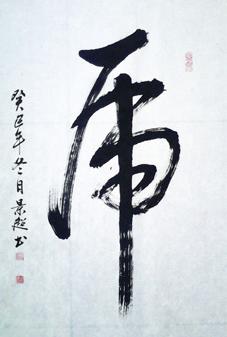 虎
癸巳年冬月景超书